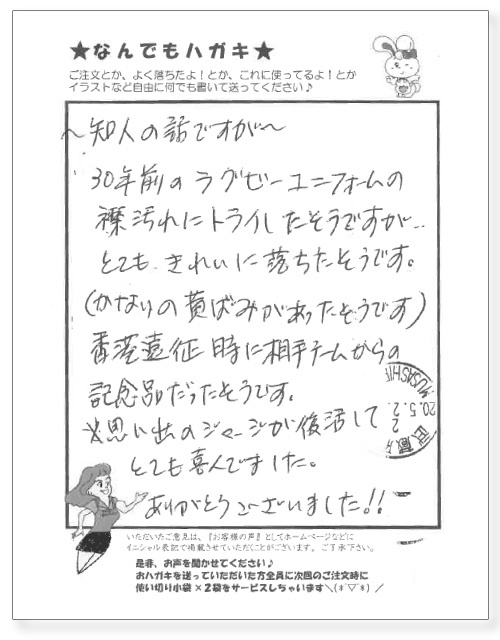 ★なんでもハガキ★
ご注文とか、よく落ちたよ！とか、これに使ってるよ！とか
イラストなど自由に何でも書いて送ってください♪
〜知人の話ですが〜
30年前のラグビーユニフォームの
襟汚れにトライしたそうですが…
とても、きれいに落ちたそうです。
(かなりの黄ばみがあったそうです)
香港遠征時に相手チームからの
記念品だったそうです。
思い出のジャージが復活して
とても喜んでました。
ありがとうございました!!
MUSASHI
20.5.2.
武蔵
いただいたご意見は、『お客様の声』としてホームページなどに
イニシャル表記で掲載させていただくことがございます。ご了承下さい。
是非、お声を聞かせてください♪
おハガキを送っていただいた方全員に次回のご注文時に
使い切り小袋×2袋をサービスしちゃいます＼(*ˇ▽ˇ*)／